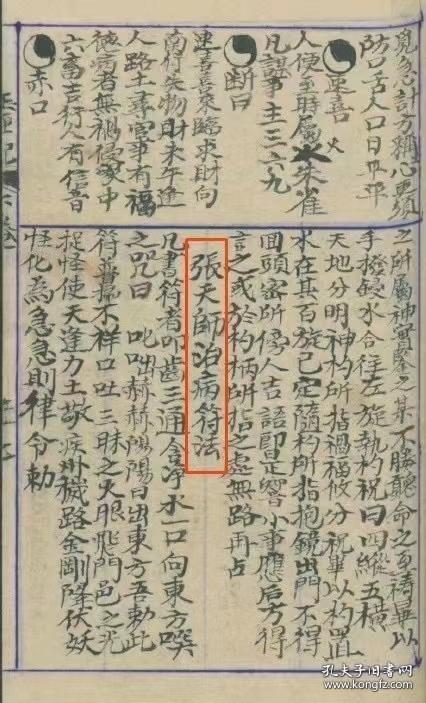 覓急討方稱心更須
防口舌人口日平平
速喜 火
人便至時屬火朱雀
凡謀事主三六九
断曰
速喜喜來臨求財向
南行失物財未午逢
人路上尋官事有福
德病者無禍侵家中
六畜吉行人有信音
赤口
之所屬神實鑒之某不勝聽命之至禱畢以
手撥鍋水令往左旋執杓祝曰四縱五橫
天地分明神杓所指禍福攸分祝畢以杓置
水在其百旋已定隨杓所指抱鏡出門不得
回頭密听傍人言語即是響小事應后方得
言之或於杓柄所指之處無路再占
張天師治病符法
凡書符者叩齒三通含淨水一口向東方噀
之咒曰 叱咄赫赫陽陽日出東方吾勅此
符普掃不祥口吐三昧之火眼飛門邑之光
捉怪使天逢力士破疾用穢跡金剛降伏妖
怪化為急急則律令勅
孔夫子旧书网
www.kongfz.com